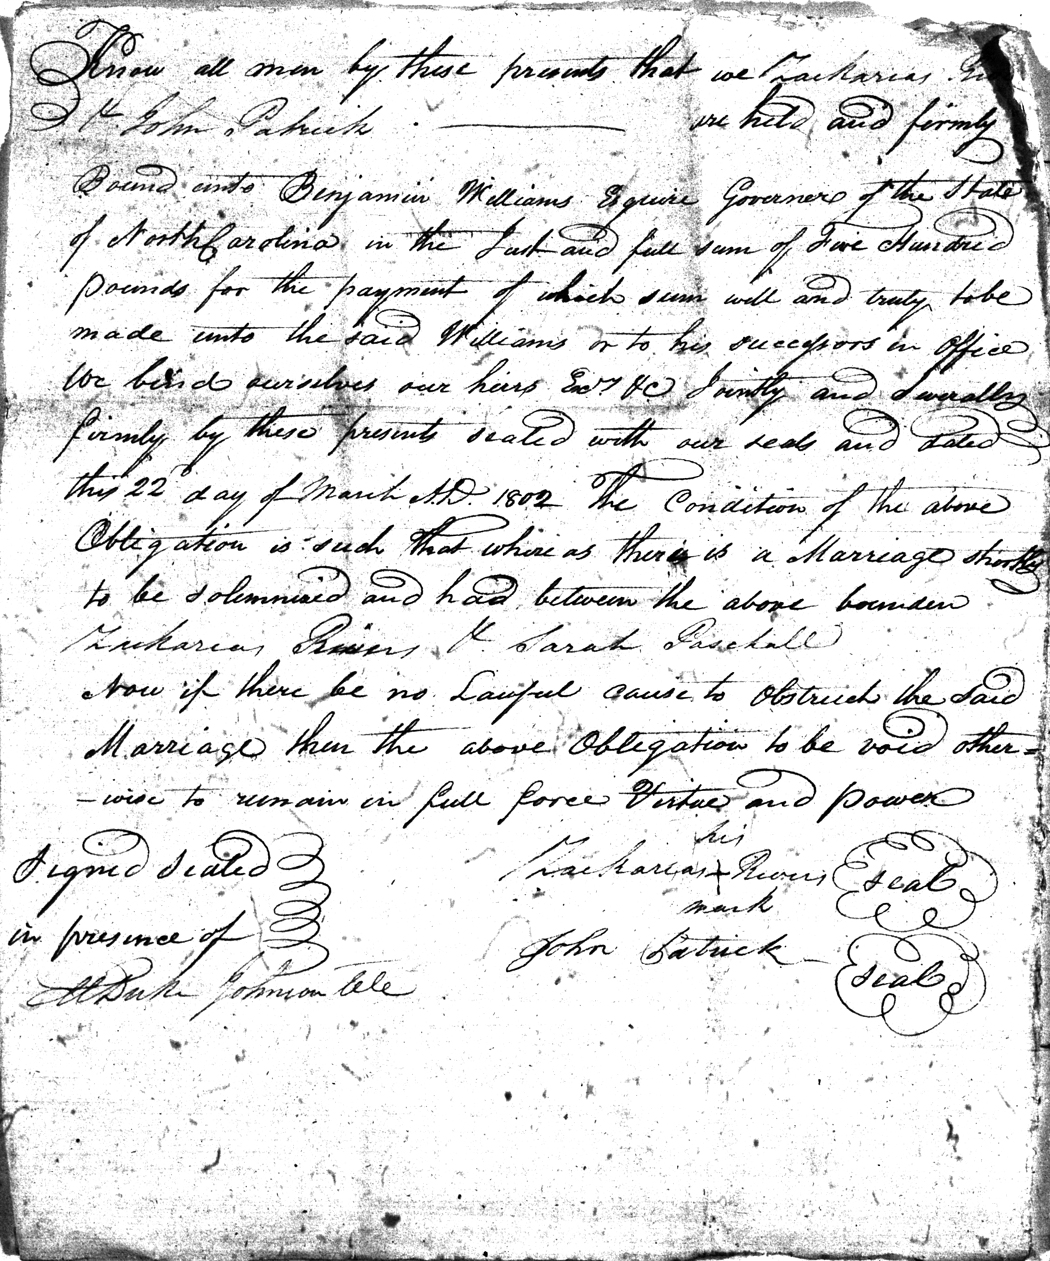 Know all men by these presents that we Zackarias
& John Patrick are held and firmly
Bound unto Benjamin Williams Esquire Governer of the State
of North Carolina in the Just and full sum of Five Hundred
pounds for the payment of which sum will and truly tobe
made unto the said Williams or to his successors in office
We bind ourselves our heirs Exrs &C Jointly and Severally
firmly by these presents sealed with our seals and dated
this 22 day of March A.D. 1802 The Condition of the above
Obligation is such that where as there is a Marriage shortly
to be solemnized and had between the above bounden
Zackarias Rivers & Sarah Paschall
Now if there be no Lawful cause to obstruct the said
Marriage then the above Obligation to be void other=
-wise to remain in full force Virtue and power
his
Signed Sealed Zackarias + Rivers seal
mark
in presence of John Patrick seal
Duke Johnson